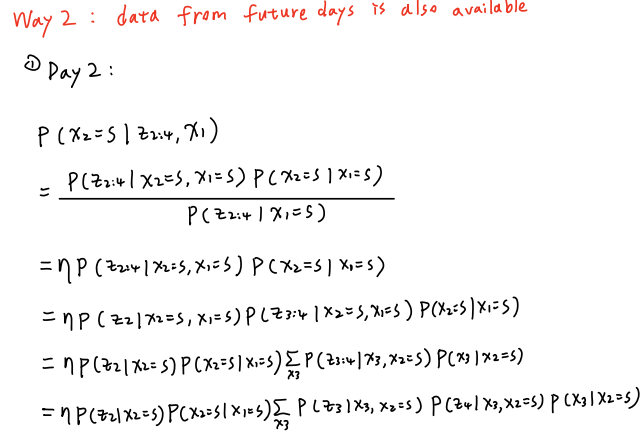 Way 2 : data from future days is also available
① Day 2 :
P(x₂=S | z₂:₄, x₁)
= P(z₂:₄ | x₂=S, x₁=S) P(x₂=S | x₁=S) / P(z₂:₄ | x₁=S)
= η P(z₂:₄ | x₂=S, x₁=S) P(x₂=S | x₁=S)
= η P(z₂ | x₂=S, x₁=S) P(z₃:₄ | x₂=S, x₁=S) P(x₂=S | x₁=S)
= η P(z₂ | x₂=S) P(x₂=S | x₁=S) Σ_x₃ P(z₃:₄ | x₃, x₂=S) P(x₃ | x₂=S)
= η P(z₂ | x₂=S) P(x₂=S | x₁=S) Σ_x₃ P(z₃ | x₃, x₂=S) P(z₄ | x₃, x₂=S) P(x₃ | x₂=S)